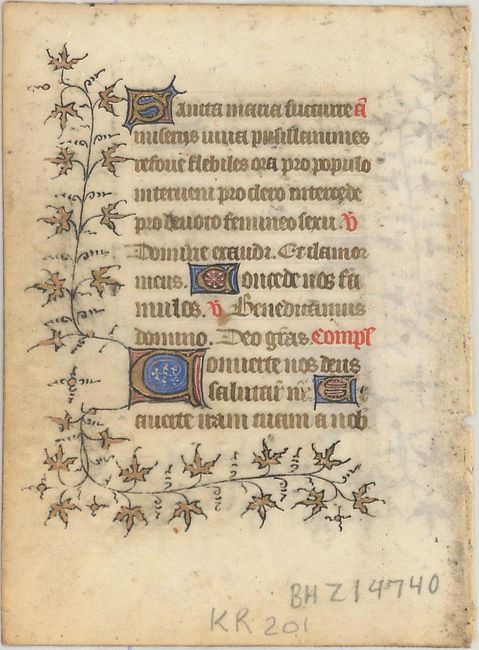 Sancta maria succurre a͞
miseris iuua pusillanimes
refoue flebiles ora pro populo
interueni pro clero intercede
pro deuoto femineo sexu. V̸
Domine exaudi. Et clamor
meus. Concede nos fa
mulos. V̸ Benedicamus
domino. Deo gr͞as. Compl͞
Conuerte nos deus
salutar͞ nr͞. Et
auerte iram tuam a nob̄
BHZ14740
KR 201